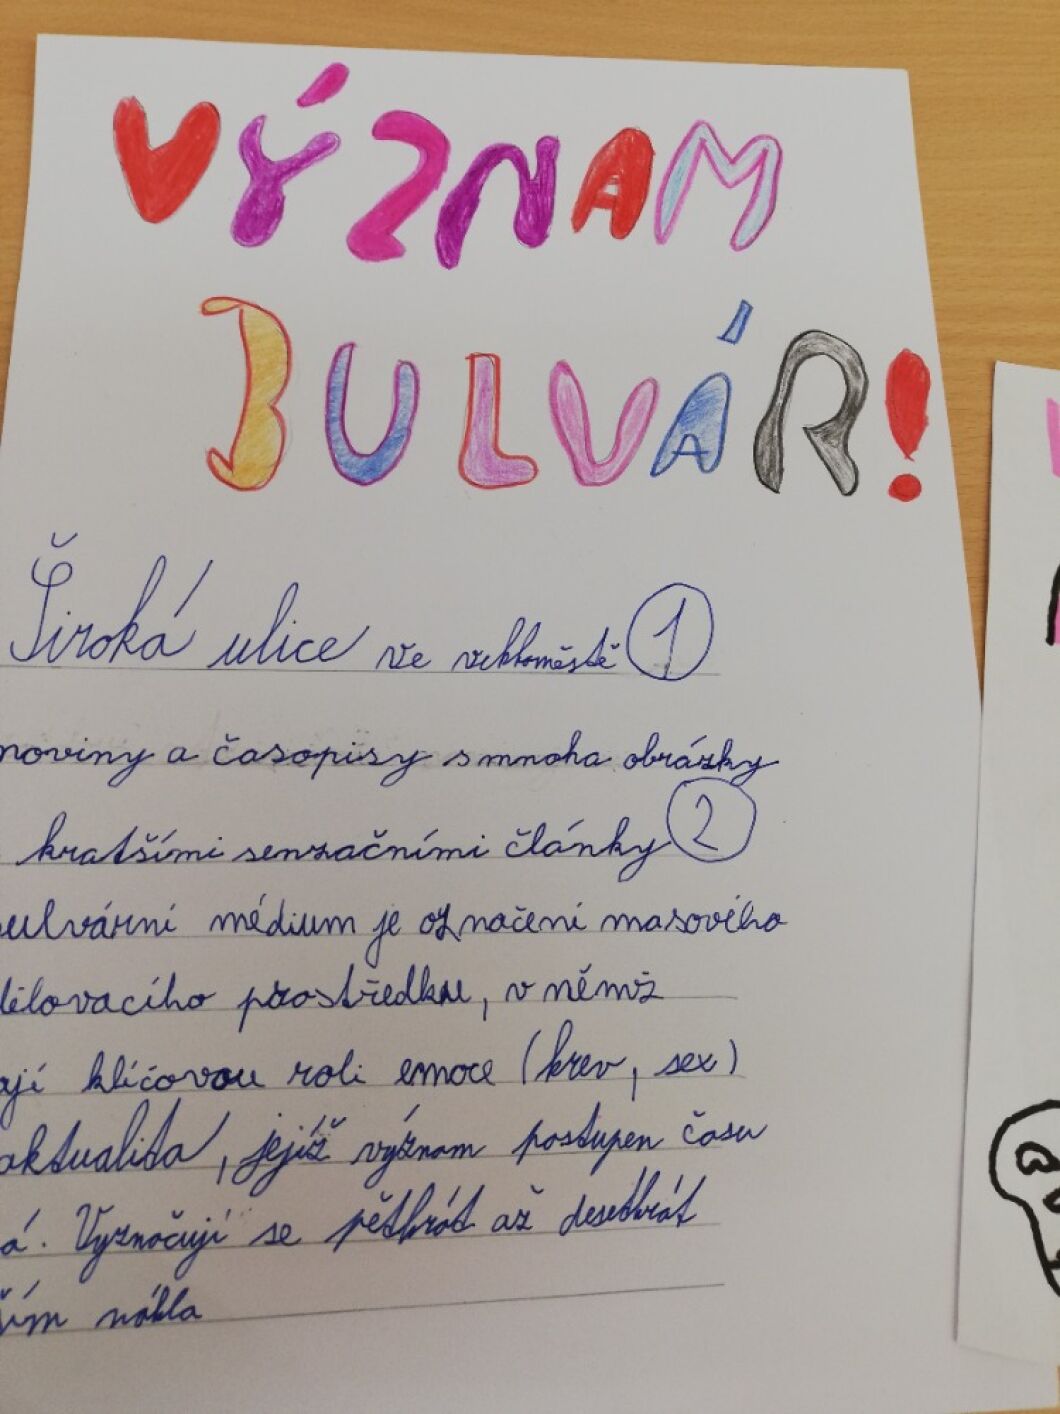 VÝZNAM
BULVÁR!
Široká ulice ve velkoměstě 1
noviny a časopisy s mnoha obrázky
kratšími senzačními články 2
bulvární médium je označení masového
dělovacího prostředku, v němž
ají klíčovou roli emoce (krev, sex)
aktualita, jejíž význam postupen času
á. Vyznačují se pětkrát až desetkrát
ším nákla